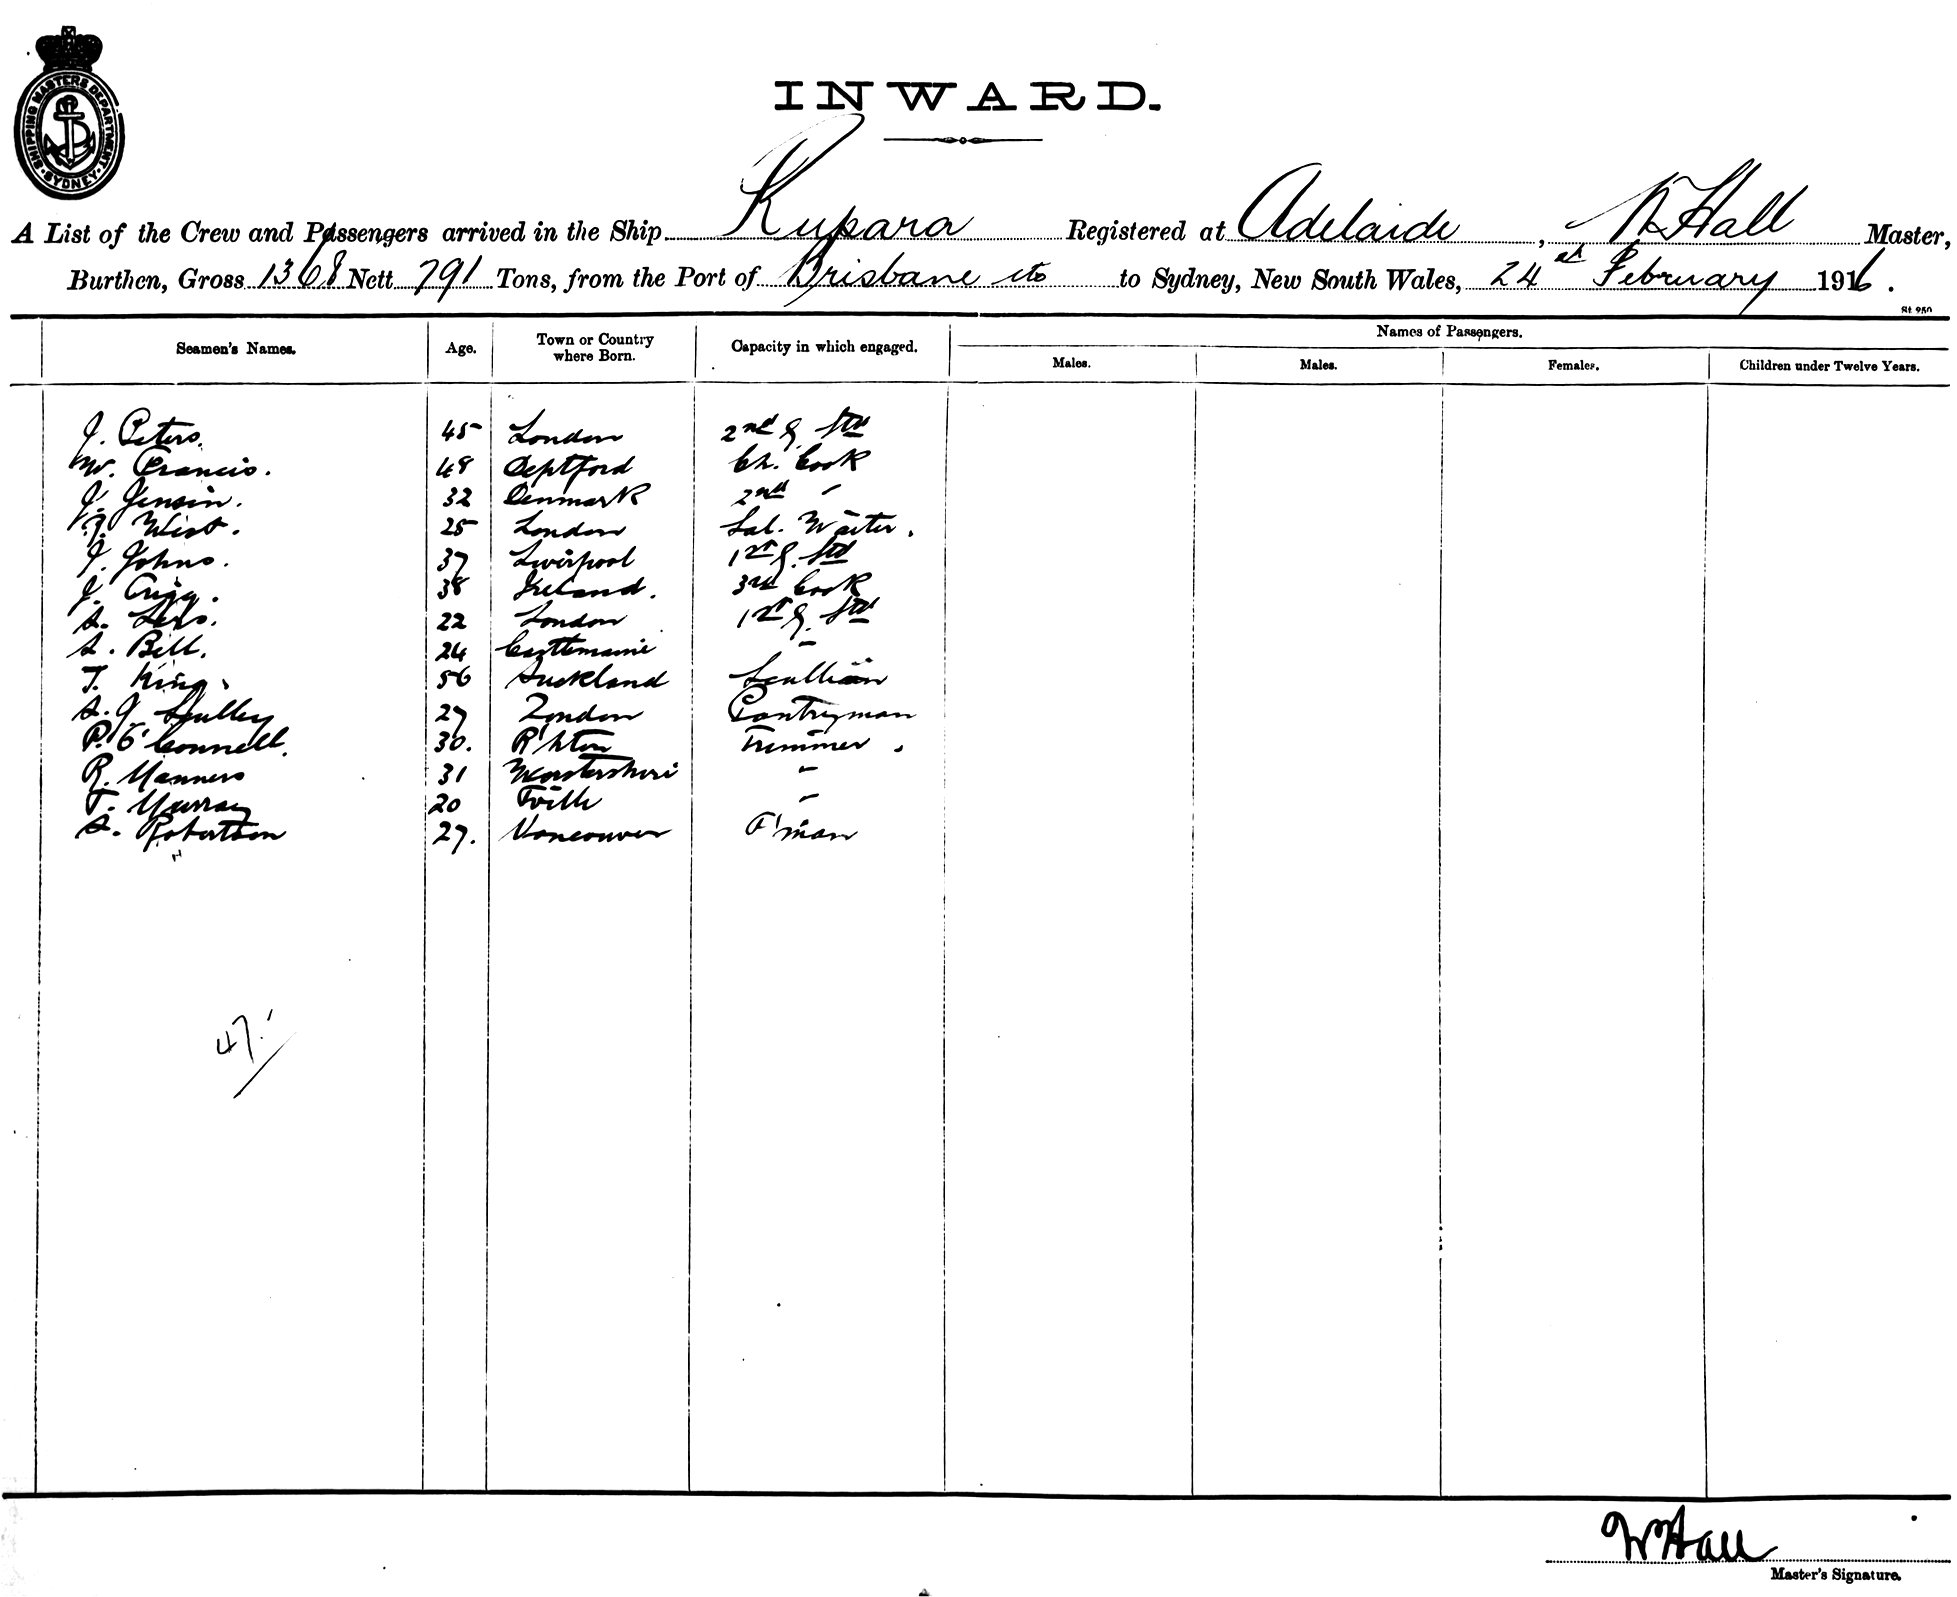 SHIPPING MASTERS DEPARTMENT
SYDNEY
INWARD.
A List of the Crew and Passengers arrived in the Ship Kupara Registered at Adelaide, W Hall Master,
Burthen, Gross 1368 Nett 791 Tons, from the Port of Brisbane etc to Sydney, New South Wales, 24th February 1916.
St 950
Seamen's Names. Age. Town or Country where Born. Capacity in which engaged. Names of Passengers.
Males. Males. Females. Children under Twelve Years.
J. Peters. 45 London 2nd S. Std
W. Francis. 48 Deptford Ch. Cook
J. Jensen. 32 Denmark 2nd "
West. 25 London Sal. Waiter.
J. Johns. 37 Liverpool 1st S. Std
J. 38 Ireland. 3rd Cook
A. 22 London 1st S. Std
A. Bell. 24 Castlemaine "
T. King. 56 Auckland Scullion
A. J. Scully 27 London Pantryman
P. O'Connell. 30. R'hton Trimmer.
R. Manners 31 Worstershire "
T. Murray 20 T'ville "
A. Robertson 27. Vancouver F'man
47.
W Hall
Master's Signature.